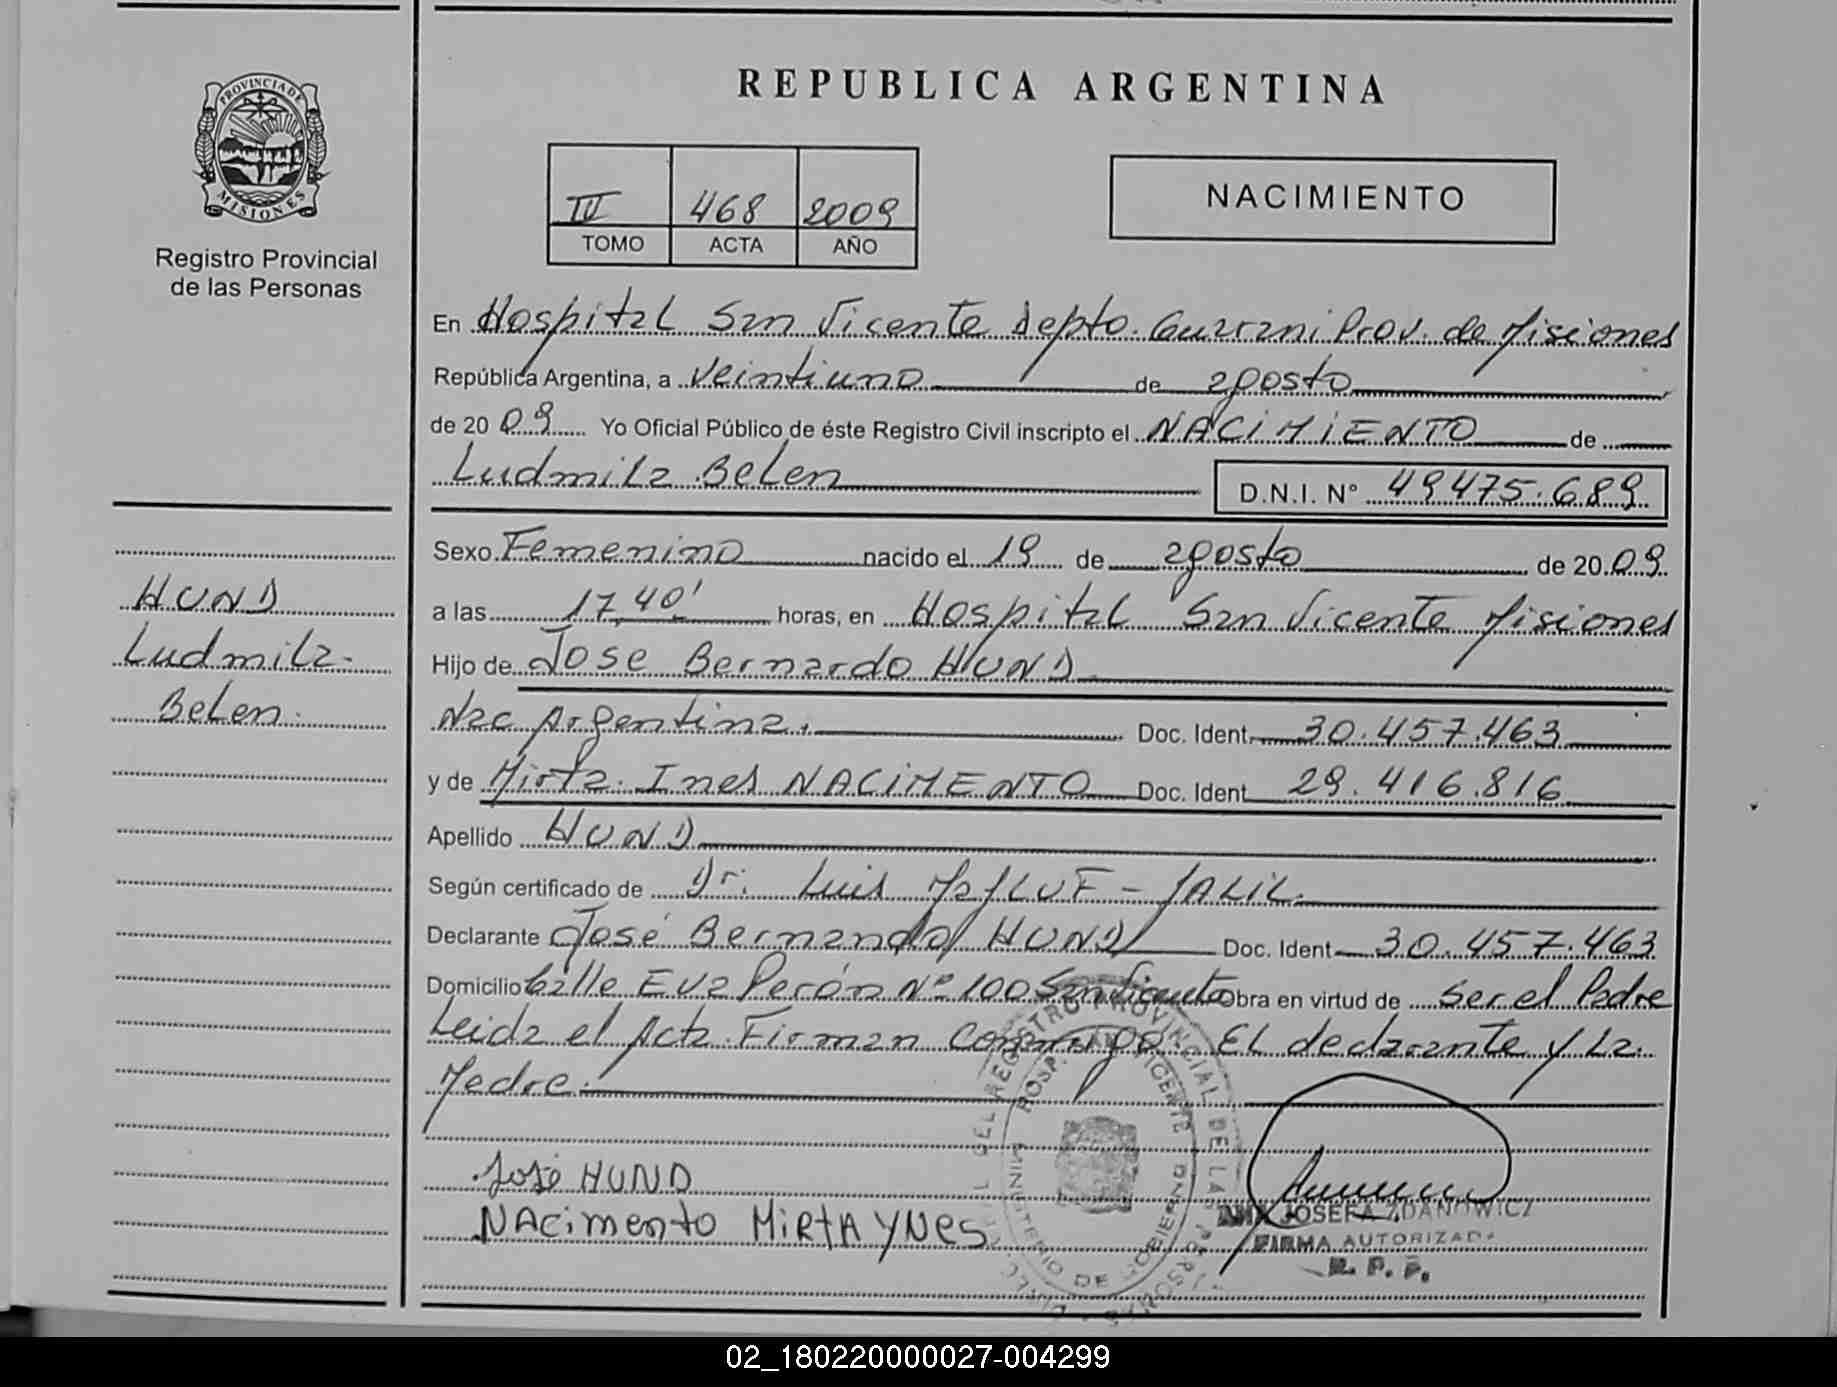 REPUBLICA ARGENTINA
PROVINCIA DE
MISIONES
Registro Provincial
de las Personas
IV 468 2009
TOMO ACTA AÑO
NACIMIENTO
En Hospital San Vicente Depto. Guarani Prov. de Misiones
República Argentina, a veintiuno de agosto
de 2009 Yo Oficial Público de éste Registro Civil inscripto el NACIMIENTO de
Ludmila Belen D.N.I. N° 49475.689
Sexo Femenino nacido el 19 de agosto de 2009
a las 17,40' horas, en Hospital San Vicente Misiones
Hijo de Jose Bernardo HUND
Nac Argentina. Doc. Ident. 30.457.463
y de Mirta Ines NACIMENTO Doc. Ident 29.416.816
Apellido HUND
Según certificado de Dr. Luis MAJLUF - JALIL.
Declarante José Bernando HUND Doc. Ident 30.457.463
Domicilio Calle Eva Perón Nº 100 San Vicente Obra en virtud de Ser el Padre
Leida el Acta Firman conmigo. EL declarante y La
Madre.
HUND
Ludmila
Belen.
José HUND
NAcimento MiRtA YNes
REGISTRO PROVINCIAL DE LAS PERSONAS
HOSP. SAN VICENTE
MINISTERIO DE GOBIERNO
ANA JOSEFA ZDANOWICZ
FIRMA AUTORIZADA
R. P. P.
02_180220000027-004299